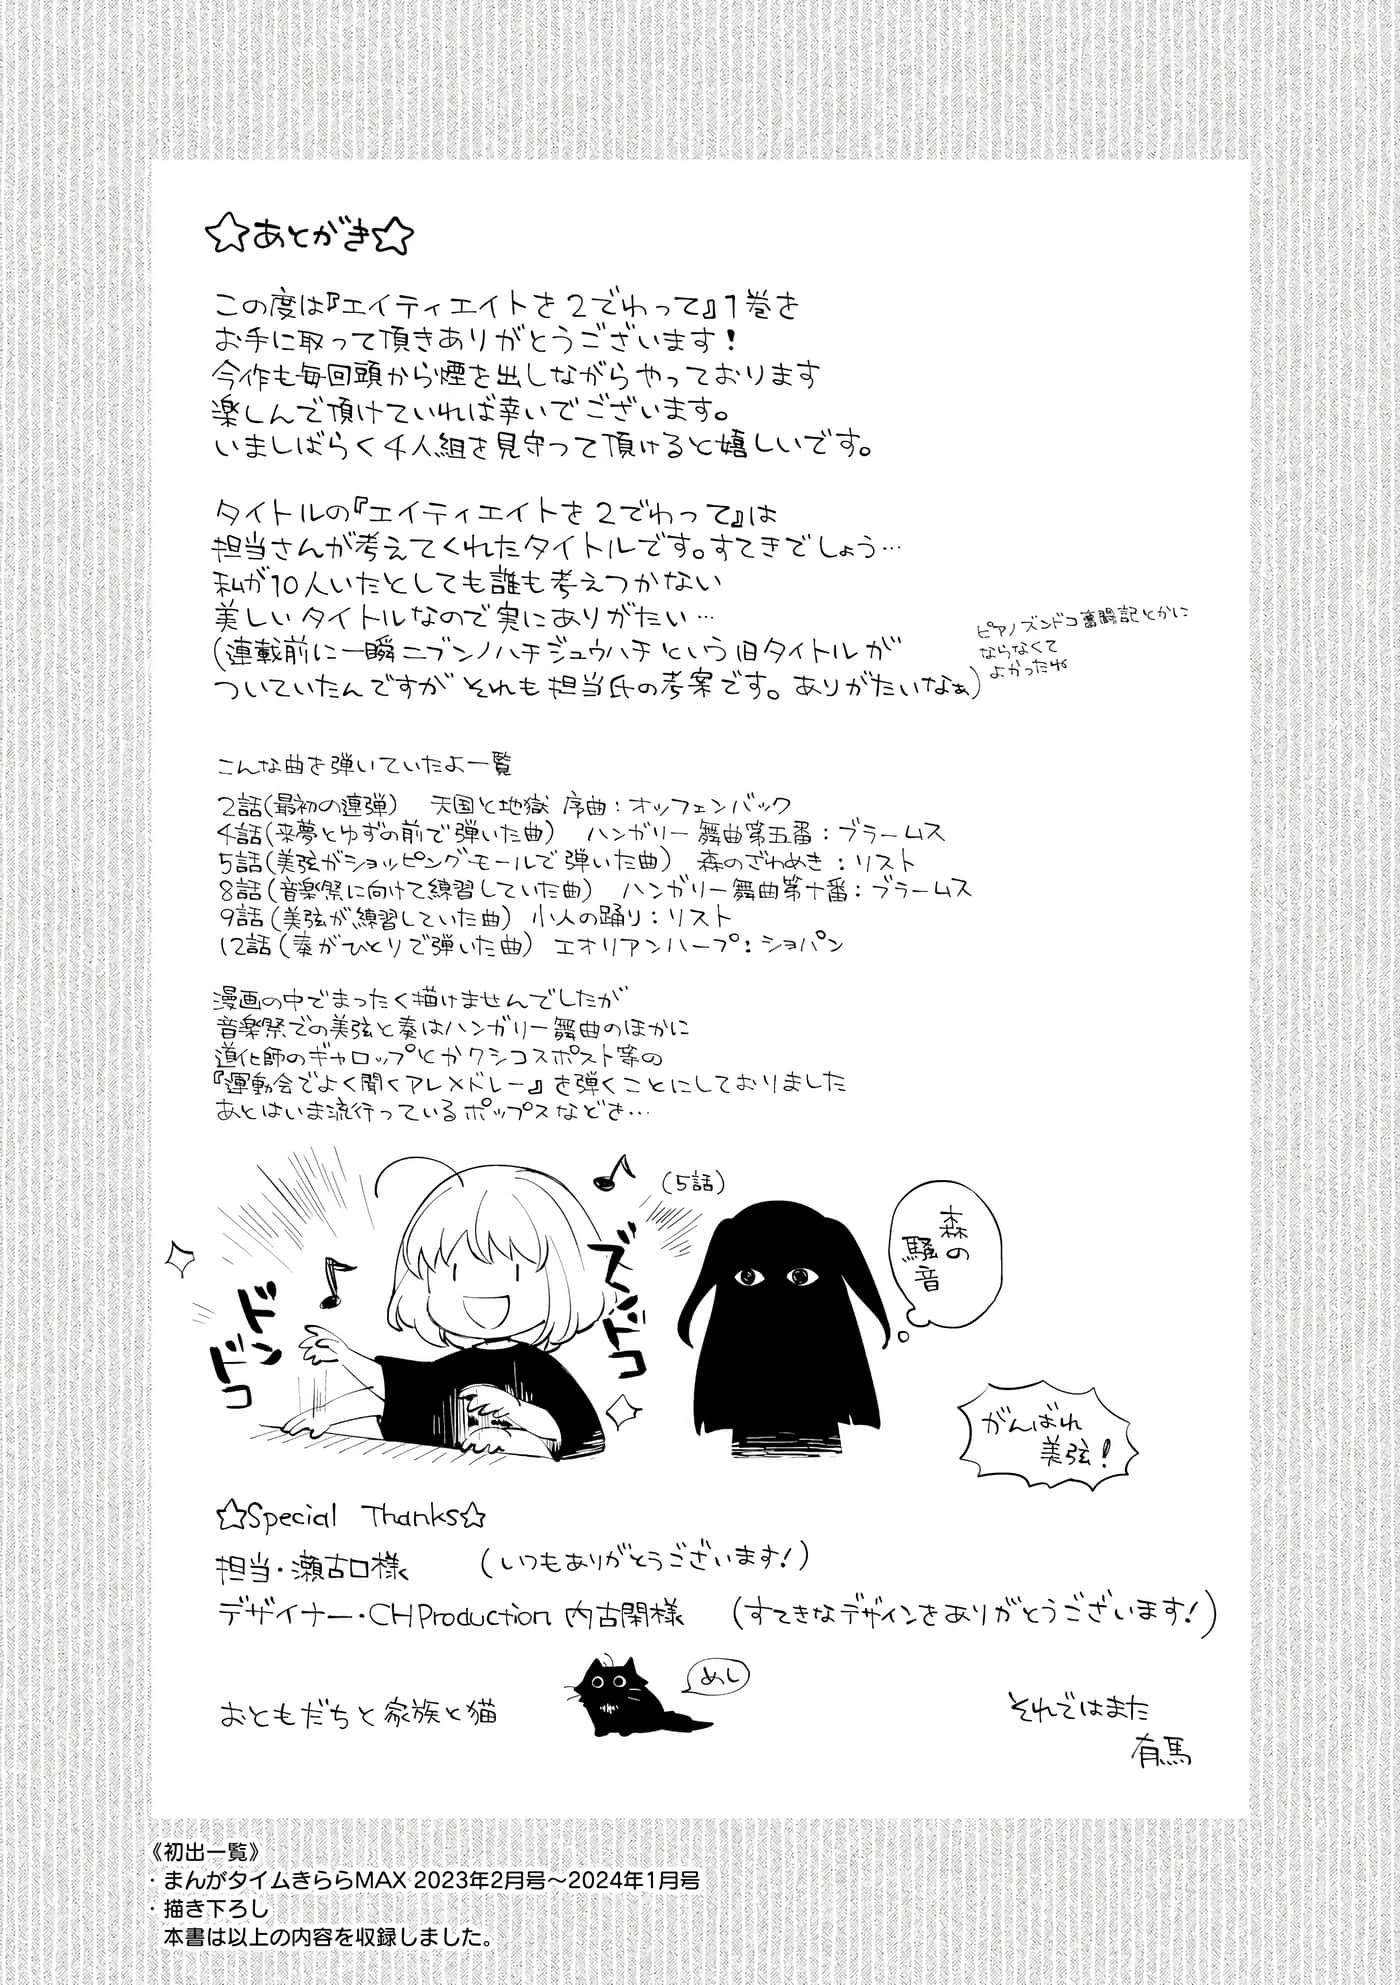 ☆あとがき☆
この度は『エイティエイトを2でわって』1巻を
お手に取って頂きありがとうございます!
今作も毎回頭から煙を出しながらやっております
楽しんで頂けていれば幸いでございます。
いましばらく4人組を見守って頂けると嬉しいです。
タイトルの『エイティエイトを2でわって』は
担当さんが考えてくれたタイトルです。すてきでしょう…
私が10人いたとしても誰も考えつかない
美しいタイトルなので実にありがたい…
(連載前に一瞬ニブンノハチジュウハチという旧タイトルが
ついていたんですがそれも担当氏の考案です。ありがたいなぁ)
ピアノズンドコ奮闘記とかに
ならなくて
よかったね
こんな曲を弾いていたよ一覧
2話(最初の連弾) 天国と地獄 序曲:オッフェンバック
4話(来夢とゆずの前で弾いた曲) ハンガリー舞曲第五番:ブラームス
5話(美弦がショッピングモールで弾いた曲) 森のざわめき:リスト
8話(音楽祭に向けて練習していた曲) ハンガリー舞曲第十番:ブラームス
9話(美弦が練習していた曲) 小人の踊り:リスト
12話(奏がひとりで弾いた曲) エオリアンハープ:ショパン
漫画の中でまったく描けませんでしたが
音楽祭での美弦と奏はハンガリー舞曲のほかに
道化師のギャロップとかクシコスポスト等の
『運動会でよく聞くアレメドレー』を弾くことにしておりました
あとはいま流行っているポップスなどを…
ドン
ドコ
ズン
ドコ
(5話)
森の
騒音
がんばれ
美弦!
☆Special Thanks☆
担当・瀬古口様 (いつもありがとうございます!)
デザイナー・CHProduction 内古閑様 (すてきなデザインをありがとうございます!)
おともだちと家族と猫
めし
それではまた
有馬
《初出一覧》
・まんがタイムきららMAX 2023年2月号～2024年1月号
・描き下ろし
本書は以上の内容を収録しました。